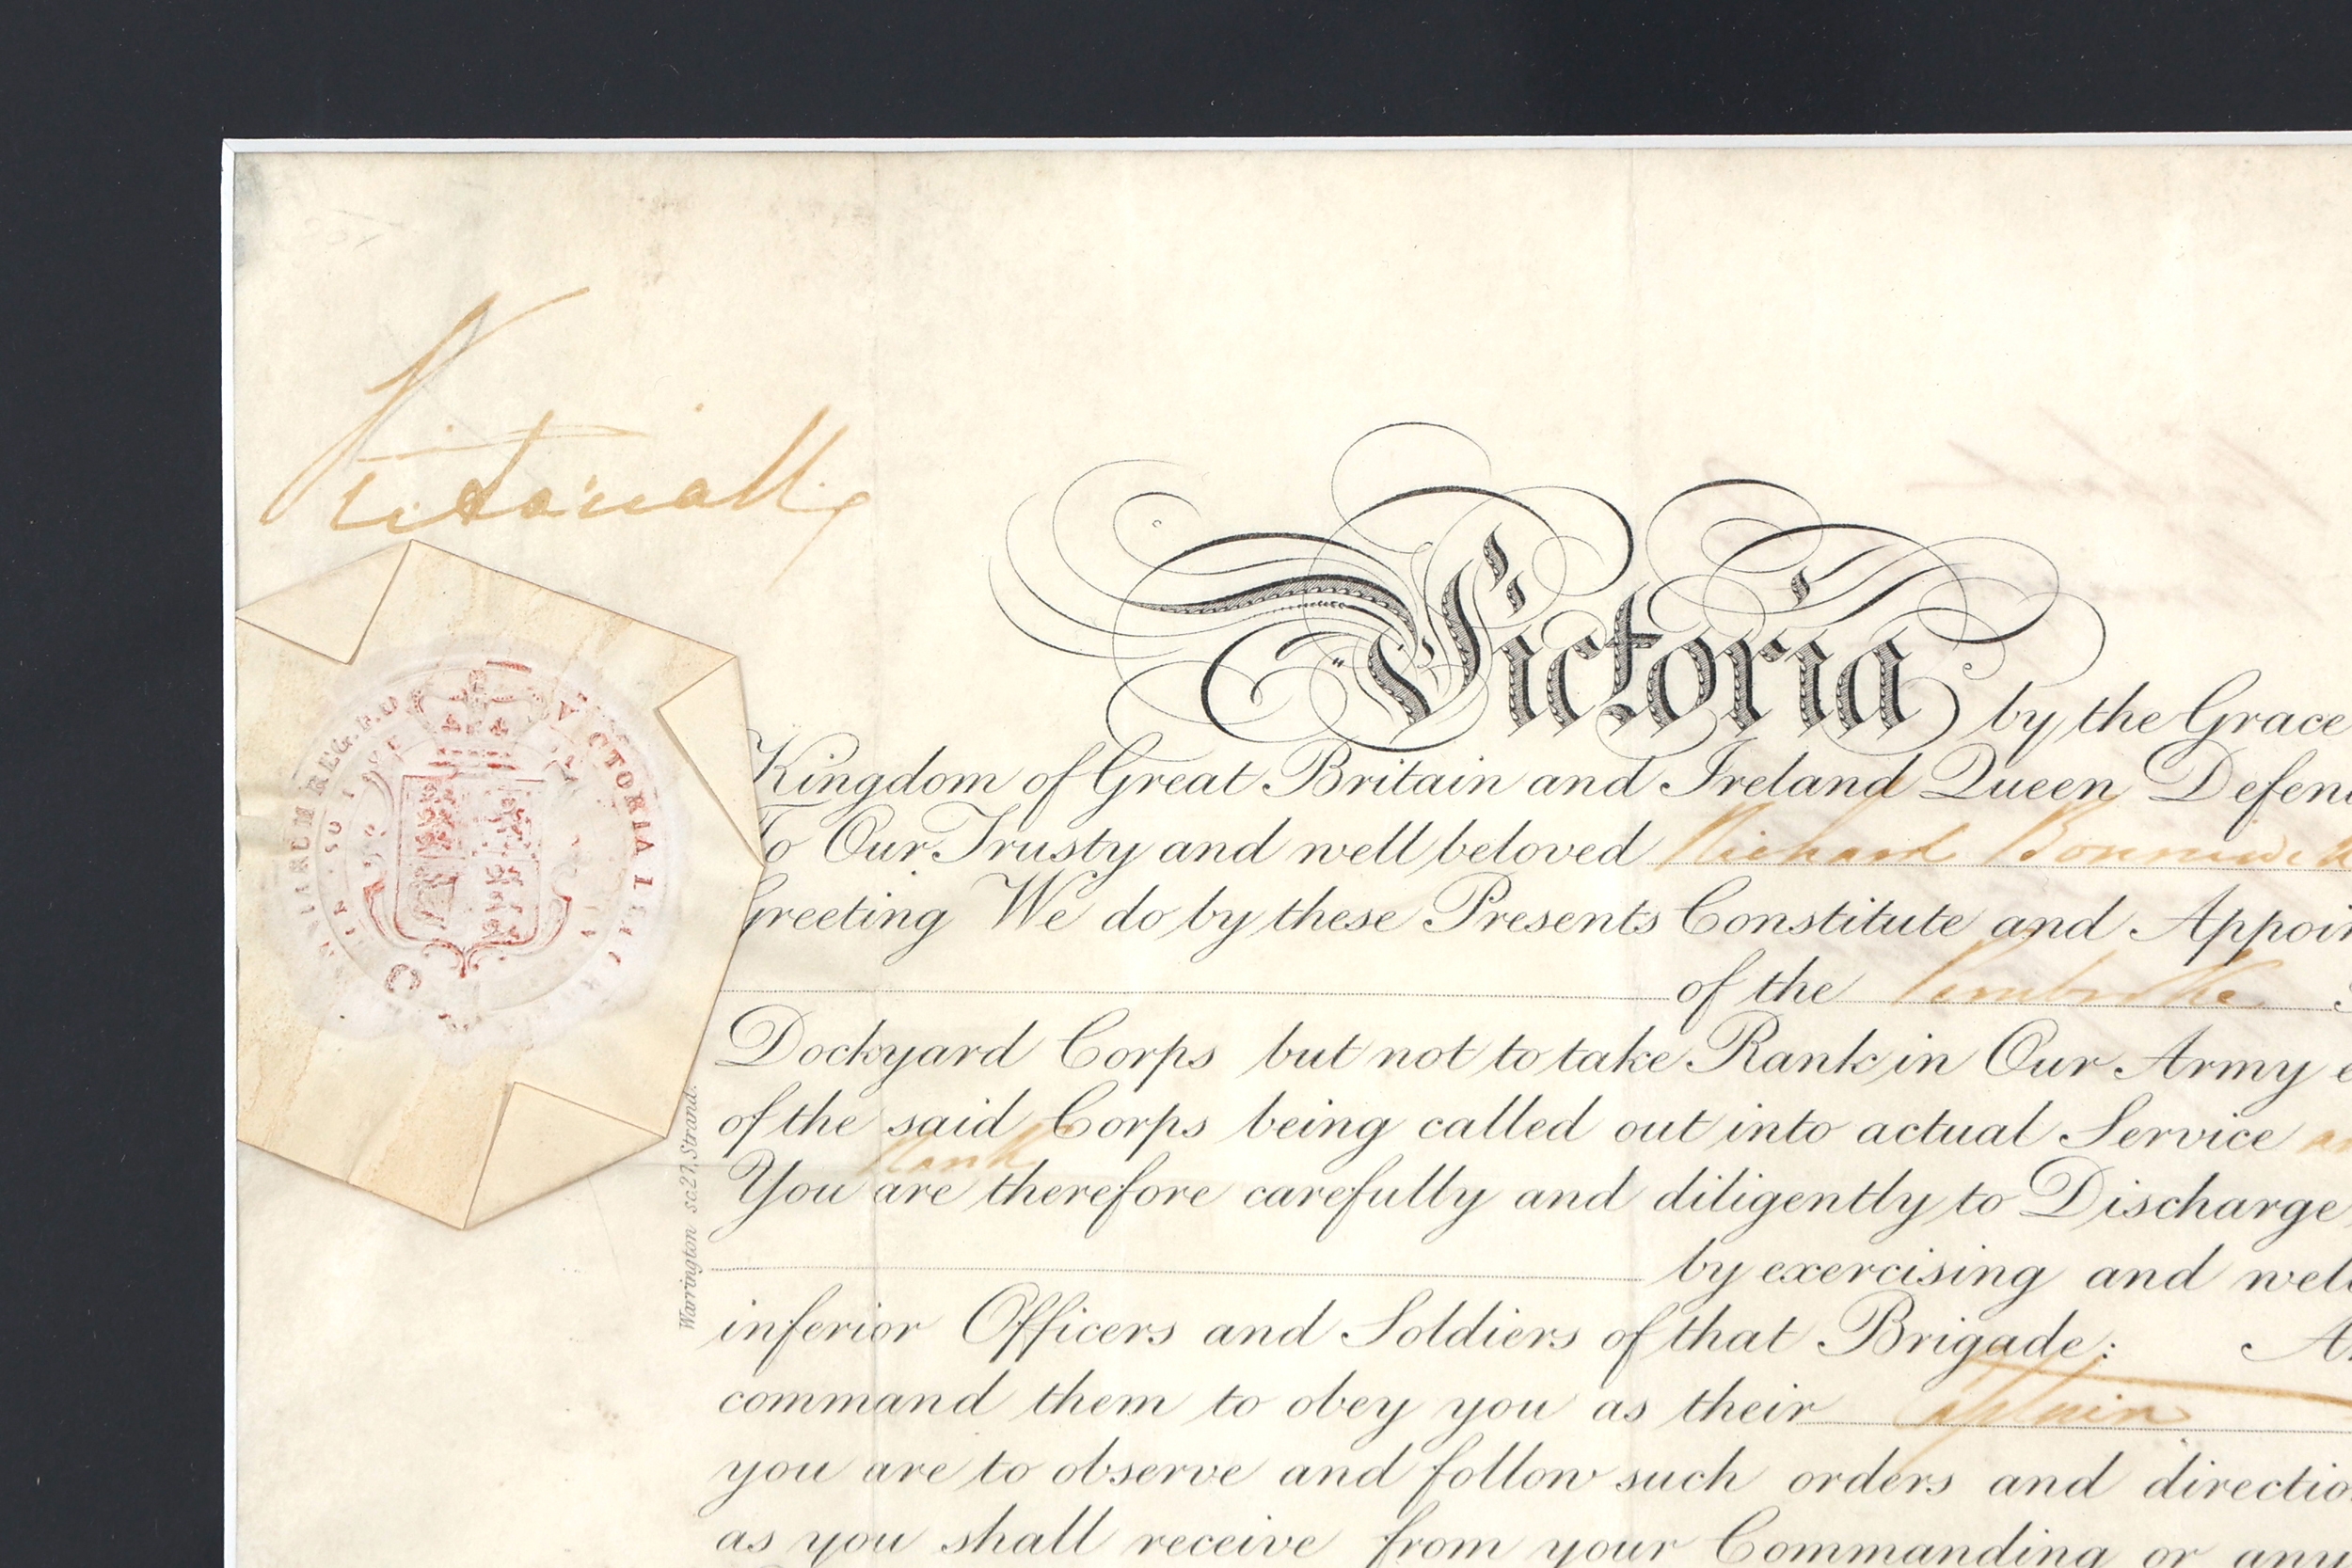 Victoria R
Victoria by the Grace
Kingdom of Great Britain and Ireland Queen Defen
To Our Trusty and well beloved Richard
Greeting We do by these Presents Constitute and Appoin
of the Pembroke
Dockyard Corps but not to take Rank in Our Army e
of the said Corps being called out into actual Service
Rank
You are therefore carefully and diligently to Discharge
by exercising and well
inferior Officers and Soldiers of that Brigade: An
command them to obey you as their Captain
you are to observe and follow such orders and directio
as you shall receive from your Commanding or any
Warrington sc. 27, Strand.
VICTORIA